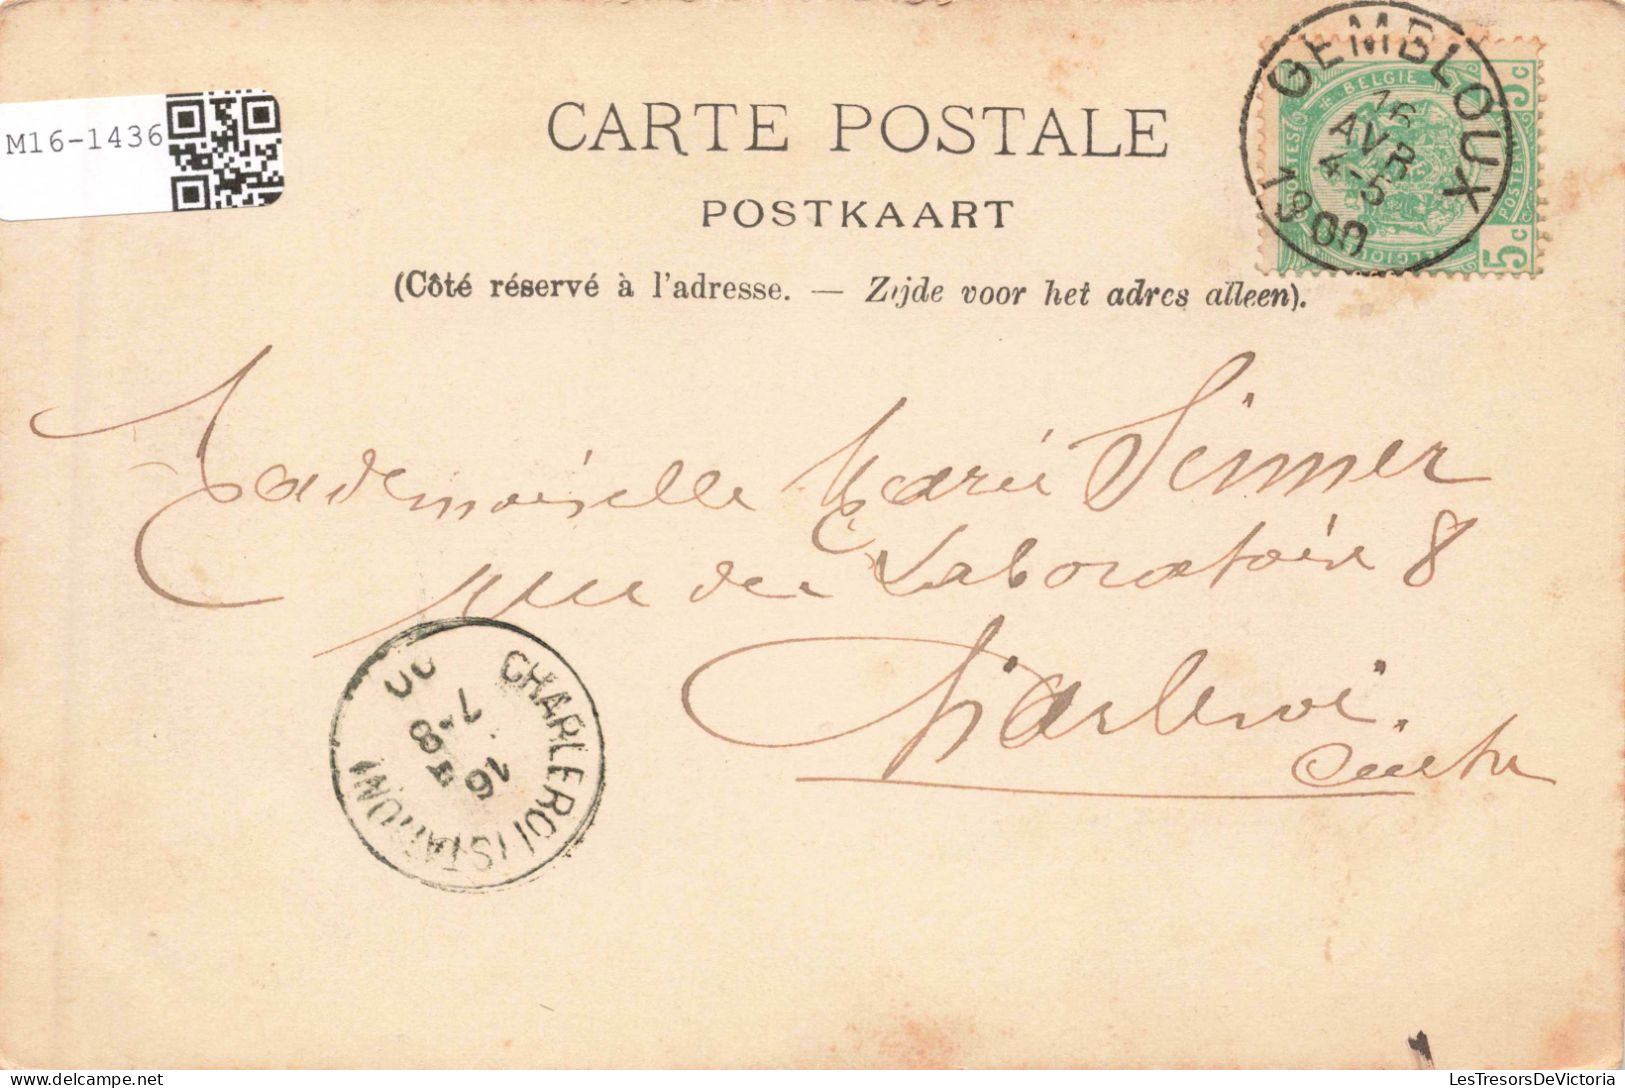 M16-1436
CARTE POSTALE
POSTKAART
(Côté réservé à l'adresse. — Zijde voor het adres alleen).
GEMBLOUX
16
AVR
4-5
1900
BELGIE
POSTES
POSTEN
BELGIQUE
5c
5c
Mademoiselle Marie Sinner
rue du Laboratoire 8
Charleroi.
CHARLEROI (STATION)
16
7-8
00
LesTresorsDeVictoria